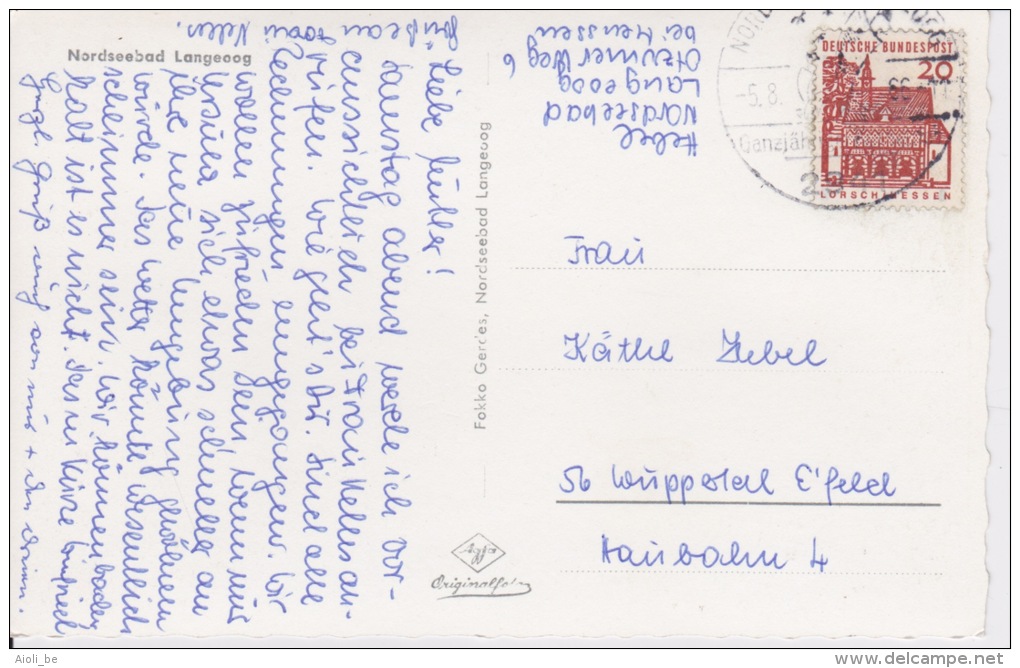 Nordseebad Langeoog
Liebe Mutter!
Samstag abend werde ich vor-
aussichtlich bei Frau Nelles an-
rufen. Wie geht's Dir. Sind alle
Rechnungen eingegangen. Wir
wollen zufrieden sein wenn nur
Ursula sich etwas schneller an
ihre neue Umgebung gewöhnen
würde. Das Wetter könnte wesentlich
schlimmer sein. Wir können baden
kalt ist es nicht. Das in Kürze
Herzl. Gruß von uns +
Grüße an Frau Nelles.
Fokko Gerdes, Nordseebad Langeoog
Agfa
Originalfoto
Hebel
Nordseebad
Langeoog
Otzumer Weg 6
bei Heussen
NORD
-5.8.
66
Ganzjäh
DEUTSCHE BUNDESPOST
20
LORSCH HESSEN
Frau
Käthe Hebel
56 Wuppertal E'feld
4
Aioli_be